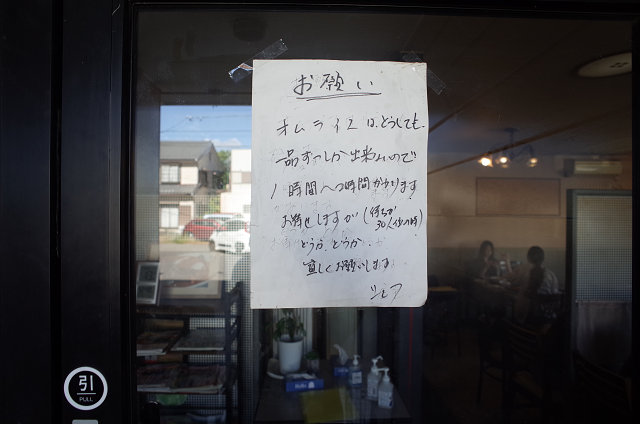 お願い
オムライスは、どうしても
一品ずつしか出来ないので
1時間〜2時間かかります
お待せしますが(待ち
30人〜1h時)
どうか、どうか、
宜しくお願いします
シェフ
引
PULL